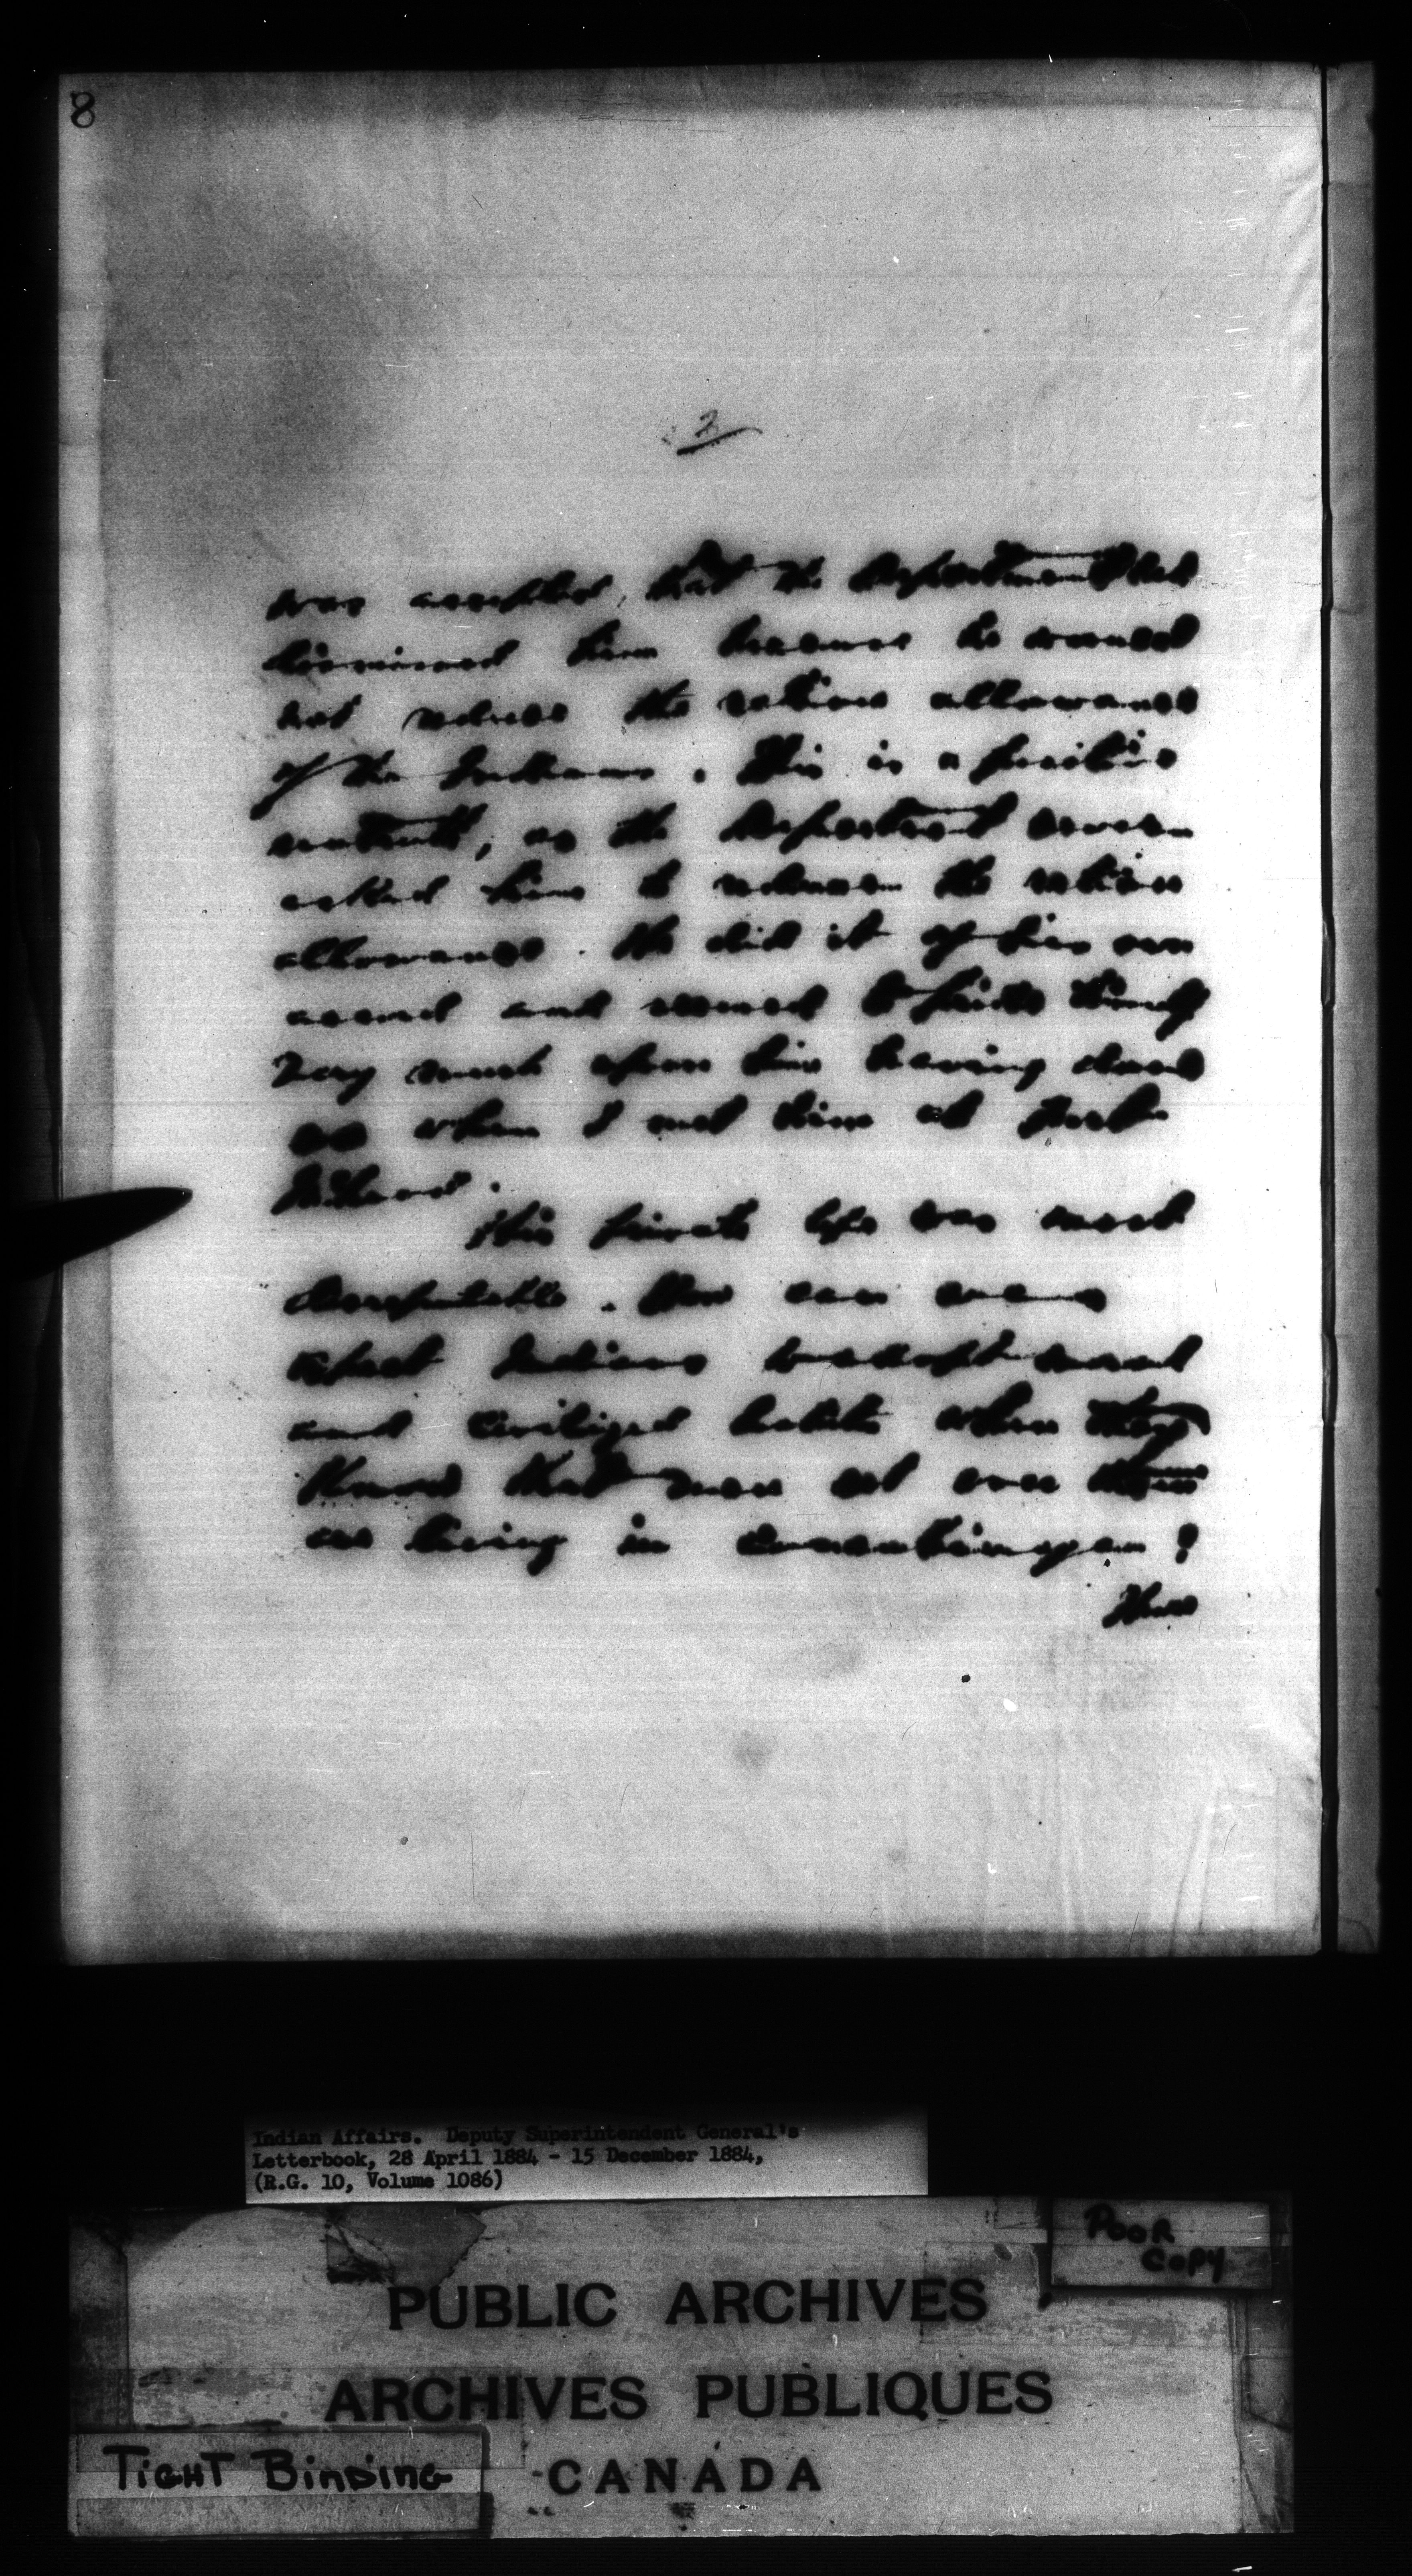 8
2
was accepted, that the Department had
dismissed him because he would
not reduce the ration allowance
of the Indians. This is a positive
untruth, as the Department never
asked him to reduce the ration
allowance. He did it of his own
accord and seemed to pride himself
very much upon his having done
so when I met him at Fort
His private life was most
disreputable. How can we
expect Indians to adopt moral
and civilized habits when they
know that men set over them
are living in concubinage?
Indian Affairs. Deputy Superintendent General's
Letterbook, 28 April 1884 - 15 December 1884,
(R.G. 10, Volume 1086)
POOR
COPY
PUBLIC ARCHIVES
ARCHIVES PUBLIQUES
TIGHT BINDING
CANADA